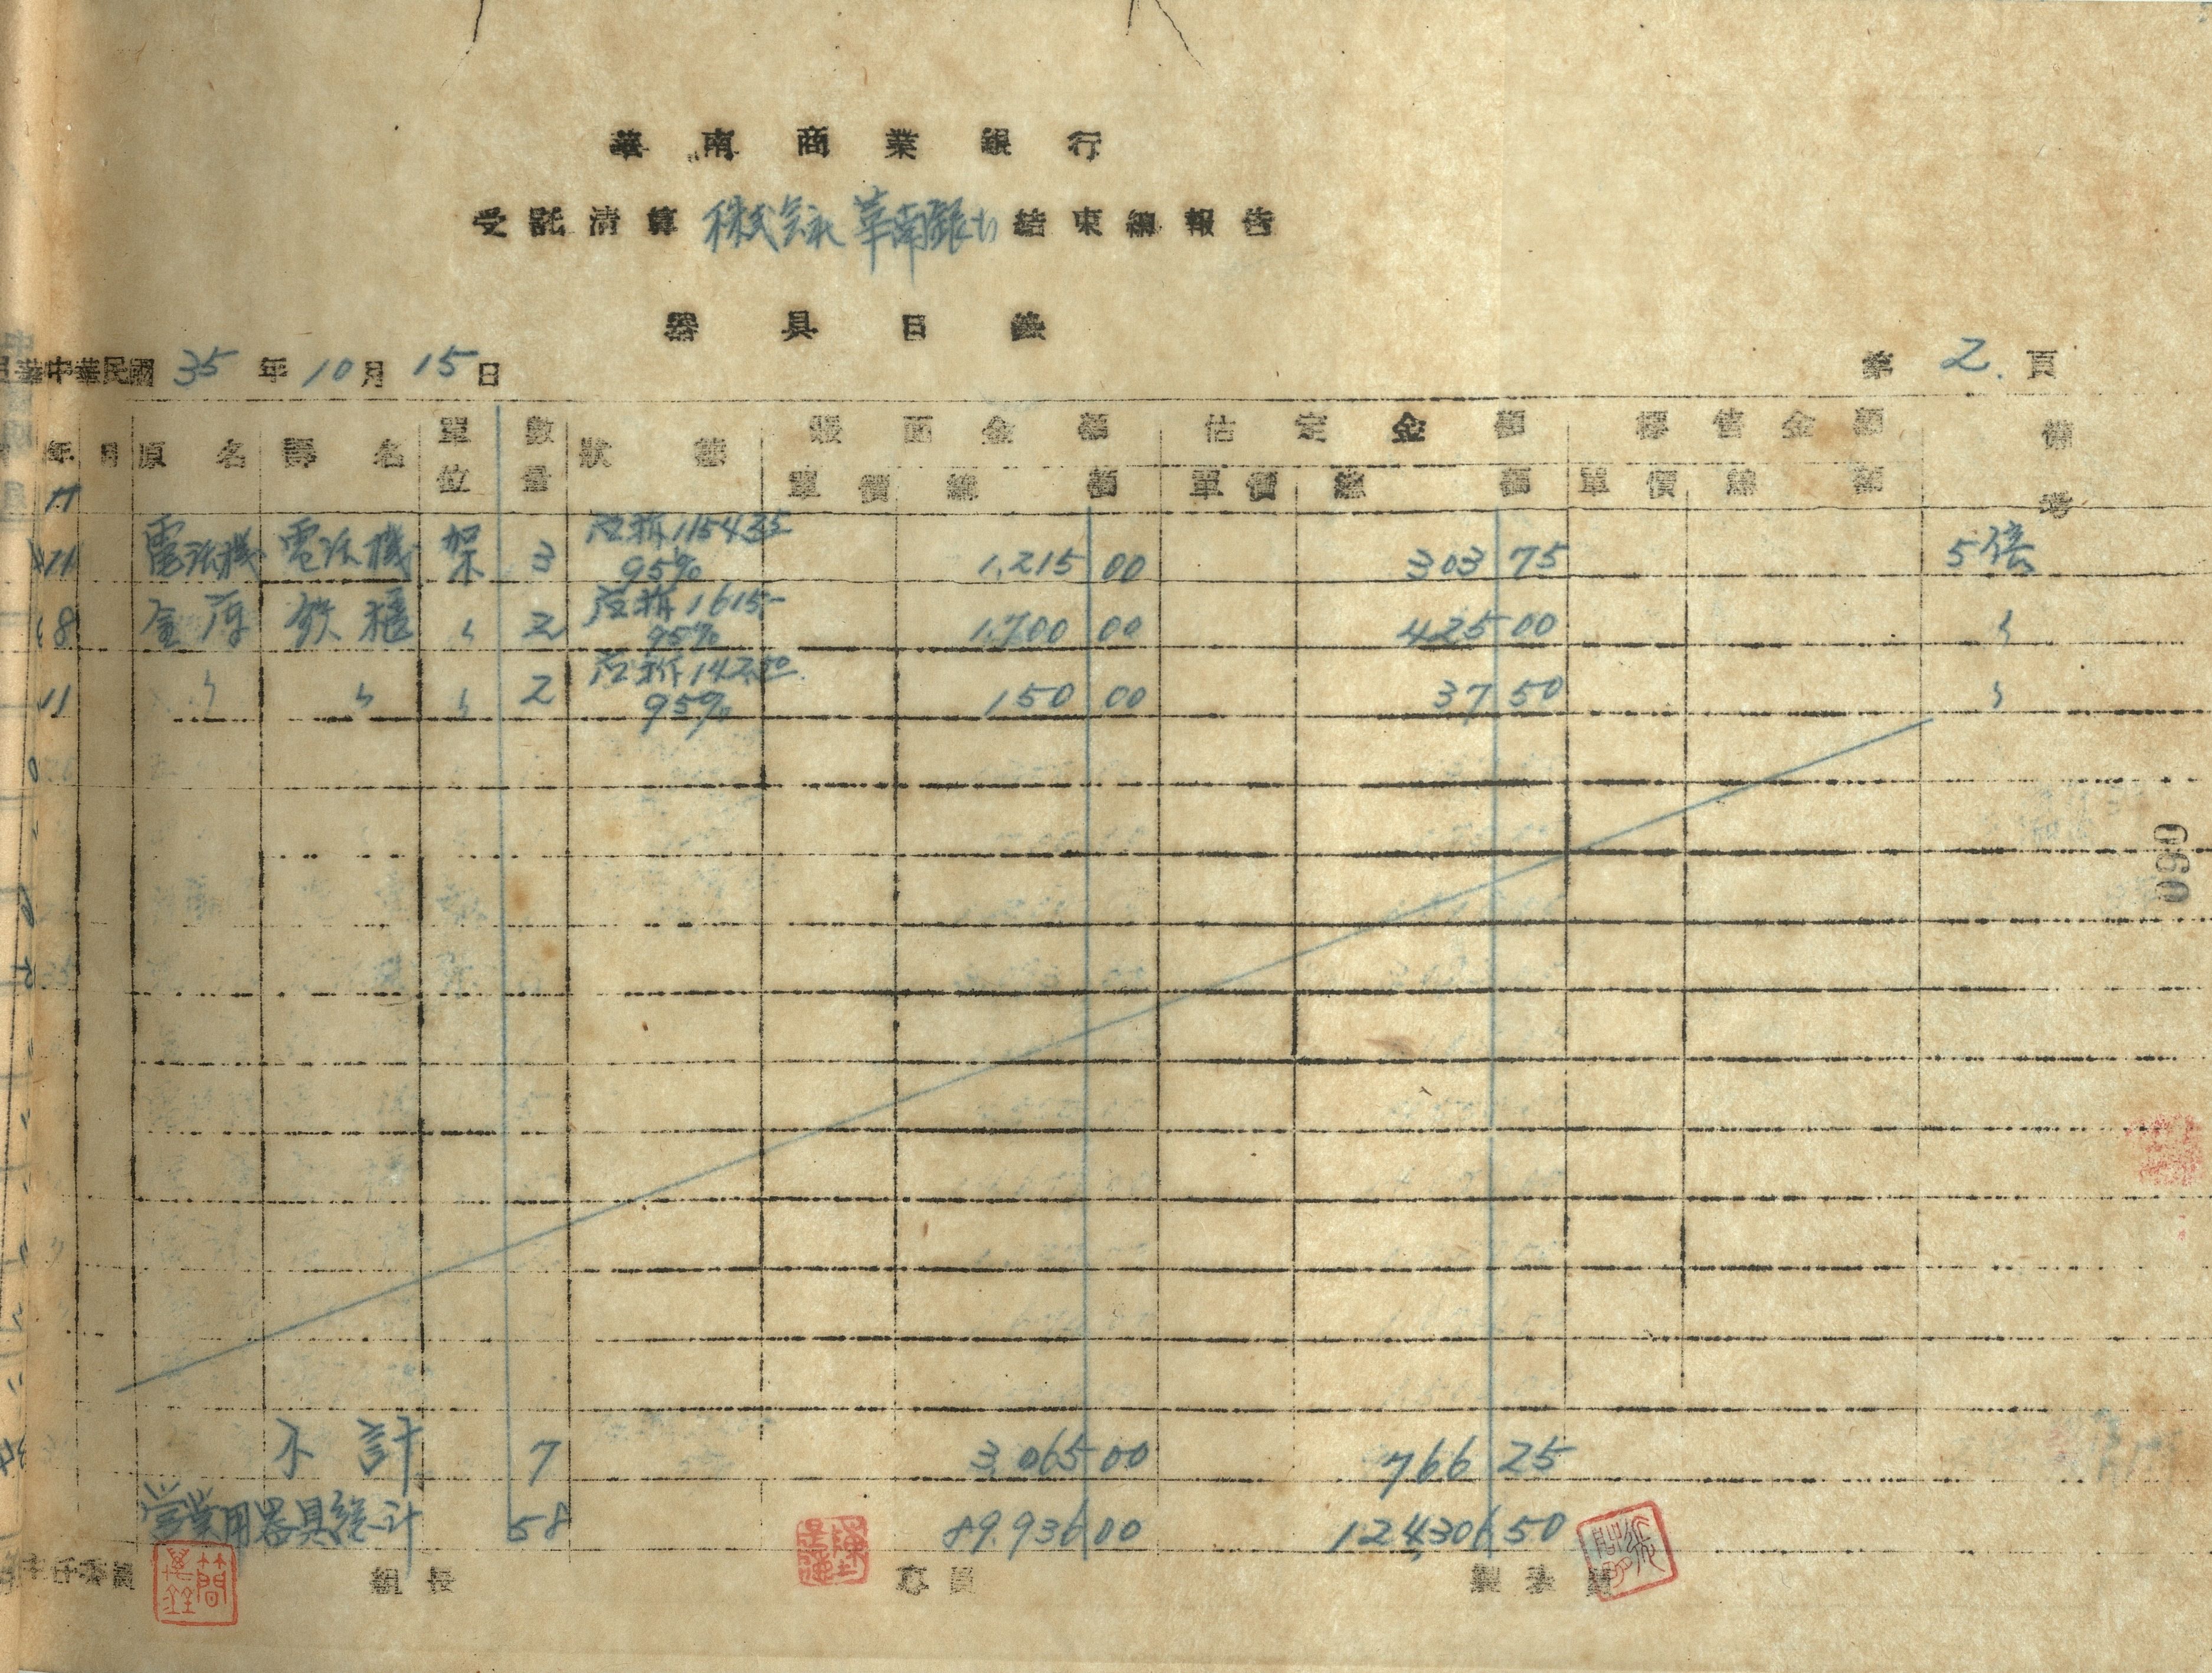 華南商業銀行
受託清算 株式会社華南銀行 結束總報告
器具目錄
中華民國 35 年 10 月 15 日 第 2 頁
原名 譯名 單位 數量 狀態 賬面金額 估定金額 標售金額 備考
單價 總額 單價 總額 單價 總額
電話機 電話機 架 3 應折1154.25 95% 1,215 00 303 75 5倍
金庫 鉄櫃 〃 2 應折1615- 95% 1,700 00 425 00 〃
〃 〃 〃 2 應折142.50 95% 150 00 37 50 〃
小計 7 3,065 00 766 25
営業用器具總計 58 89,936 00 124,306 50
主任委員 組長 專員 製表員
090